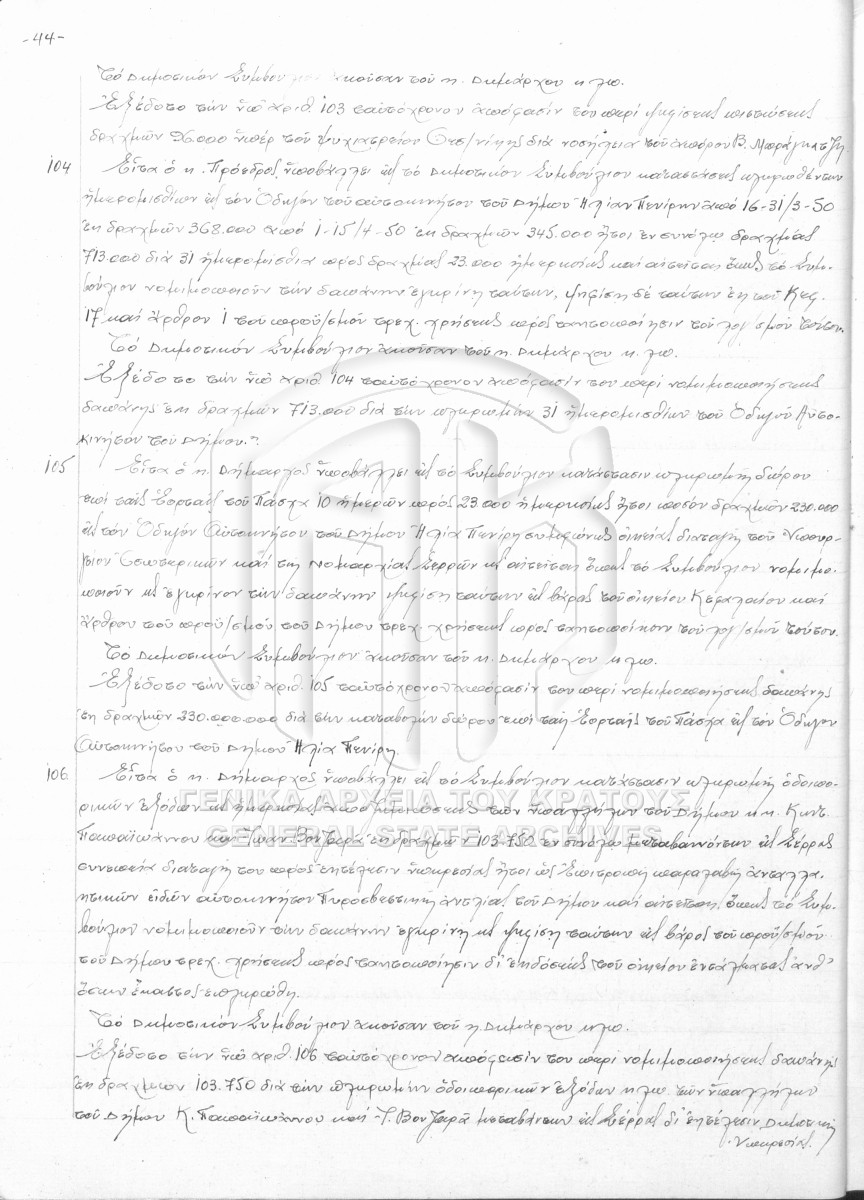 -44-
Τό Δημοτικόν Συμβούλιον ἀκοῦσαν τοῦ κ. Δημάρχου κλπ.
Ἐξέδοτο τήν ὑπ' ἀριθ. 103 ταὐτόχρονον ἀπόφασίν του περί ψηφίσεως πιστώσεως
δραχμῶν 96.000 ὑπέρ τοῦ Ψυχιατρείου Θεσ/νίκης διά νοσήλεια τοῦ ἀπόρου Β.
104 Εἶτα ὁ κ. Πρόεδρος ὑποβάλλει εἰς τό Δημοτικόν Συμβούλιον καταστάσεις πληρωθέντων
ἡμερομισθίων εἰς τόν Ὁδηγόν τοῦ αὐτοκινήτου τοῦ Δήμου Ἠλίαν Πενίρην ἀπό 16-31/3-50
ἐκ δραχμῶν 368.000 ἀπό 1-15/4-50 ἐκ δραχμῶν 345.000 ἤτοι ἐν συνόλῳ δραχμάς
713.000 διά 31 ἡμερομίσθια πρός δραχμάς 23.000 ἡμερησίως καί αἰτεῖται ὅπως τό Συμ-
βούλιον νομιμοποιοῦν τήν δαπάνην ἐγκρίνῃ ταύτην, ψηφίσῃ δέ ταύτην ἐκ τοῦ Κεφ.
17 καί ἄρθρου 1 τοῦ προϋ/σμοῦ τρεχ. χρήσεως πρός τακτοποίησιν τοῦ λογ/σμοῦ τούτου.
Τό Δημοτικόν Συμβούλιον ἀκοῦσαν τοῦ κ. Δημάρχου κ.λπ.
Ἐξέδοτο τήν ὑπ' ἀριθ. 104 ταὐτόχρονον ἀπόφασίν του περί νομιμοποιήσεως
δαπάνης ἐκ δραχμῶν 713.000 διά τήν πληρωμήν 31 ἡμερομισθίων τοῦ Ὁδηγοῦ Αὐτο-
κινήτου τοῦ Δήμου.
105 Εἶτα ὁ κ. Δήμαρχος ὑποβάλλει εἰς τό Συμβούλιον κατάστασιν πληρωμῆς δώρου
ἐπί ταῖς Ἑορταῖς τοῦ Πάσχα 10 ἡμερῶν πρός 23.000 ἡμερησίως ἤτοι ποσόν δραχμῶν 230.000
εἰς τόν Ὁδηγόν Αὐτοκινήτου τοῦ Δήμου Ἠλία Πενίρη συμφώνως οἰκείας διαταγῇ τοῦ Ὑπουρ-
γείου Ἐσωτερικῶν καί τῆς Νομαρχίας Σερρῶν κ αἰτεῖται ὅπως τό Συμβούλιον νομιμο-
ποιοῦν κ ἐγκρῖνον τήν δαπάνην ψηφίσῃ ταύτην εἰς βάρος τοῦ οἰκείου Κεφαλαίου καί
ἄρθρου τοῦ προϋ/σμοῦ τοῦ Δήμου τρεχ. χρήσεως πρός τακτοποίησιν τοῦ λογ/σμοῦ τούτου.
Τό Δημοτικόν Συμβούλιον ἀκοῦσαν τοῦ κ. Δημάρχου κ.λπ.
Ἐξέδοτο τήν ὑπ' ἀριθ. 105 ταὐτόχρονον ἀπόφασίν του περί νομιμοποιήσεως δαπάνης
ἐκ δραχμῶν 230.000.000 διά τήν καταβολήν δώρου ἐπί ταῖς Ἑορταῖς τοῦ Πάσχα εἰς τόν Ὁδηγόν
Αὐτοκινήτου τοῦ Δήμου Ἠλία Πενίρη.
106 Εἶτα ὁ κ. Δήμαρχος ὑποβάλλει εἰς τό Συμβούλιον κατάστασιν πληρωμῆς ὁδοιπο-
ρικῶν ἐξόδων κ ἡμερησίας ἀποζημιώσεως τῶν ὑπαλλήλων τοῦ Δήμου κ.κ. Κωνστ.
ΓΕΝΙΚΑ ΑΡΧΕΙΑ ΤΟΥ ΚΡΑΤΟΥΣ
Παπαϊωάννου καί Ἰωάν. Βουζαρᾶ ἐκ δραχμῶν 103.750 ἐν συνόλῳ μεταβαινόντων εἰς Σέρρας
GENERAL STATE ARCHIVES
συνεπείᾳ διαταγῇ του πρός ἐκτέλεσιν ὑπηρεσίας ἤτοι ὡς Ἐπιτροπή παραλαβῆς ἀνταλλα-
κτικῶν εἰδῶν αὐτοκινήτου Πυροσβεστικῆς ἀντλίας τοῦ Δήμου καί αἰτεῖται ὅπως τό Συμ-
βούλιον νομιμοποιοῦν τήν δαπάνην ἐγκρίνῃ κ ψηφίσῃ ταύτην εἰς βάρος τοῦ προϋ/σμοῦ
τοῦ Δήμου τρεχ. χρήσεως πρός τακτοποίησιν δι' ἐκδόσεως τοῦ οἰκείου ἐντάλματος ἀνθ'
ὅσων ἕκαστος ἐπληρώθη.
Τό Δημοτικόν Συμβούλιον ἀκοῦσαν τοῦ κ Δημάρχου κλπ.
Ἐξέδοτο τήν ὑπ' ἀριθ. 106 ταὐτόχρονον ἀπόφασίν του περί νομιμοποιήσεως δαπάνης
ἐκ δραχμῶν 103.750 διά τήν πληρωμήν ὁδοιπορικῶν ἐξόδων κ.λπ. τῶν ὑπαλλήλων
τοῦ Δήμου Κ. Παπαϊωάννου καί Ἰ. Βουζαρᾶ μεταβάντων εἰς Σέρρας δι' ἐκτέλεσιν Δημοτικῆς
Ὑπηρεσίας.